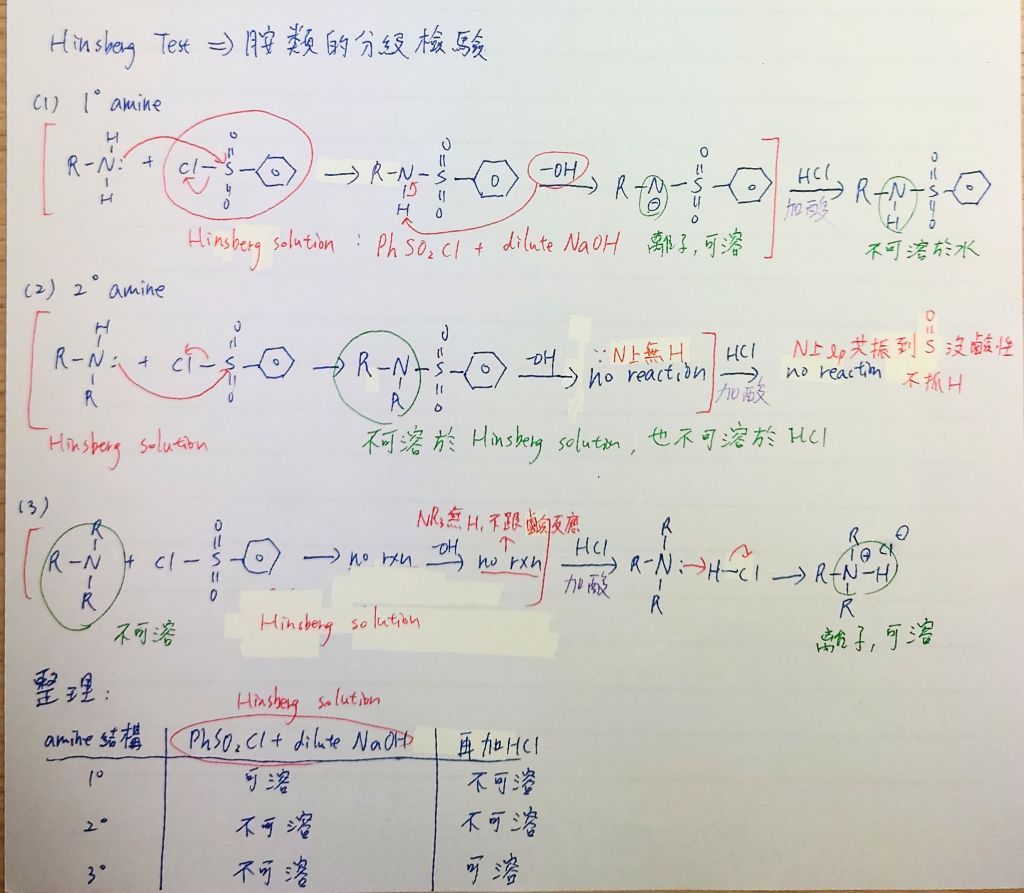 Hinsberg Test ⇒ 胺類的分級檢驗
(1) 1° amine
R-N: + Cl-S → R-N-S -OH→ R-N-S HCl→ R-N-S
H H O O H O O ⊖ O O 加酸 H O O
Hinsberg solution : PhSO₂Cl + dilute NaOH 離子,可溶 不可溶於水
(2) 2° amine
R-N: + Cl-S → R-N-S -OH→ ∵N上無H HCl→ N上lp共振到S沒鹼性
H R O O R O O no reaction 加酸 no reaction 不抓H
Hinsberg solution 不可溶於 Hinsberg solution, 也不可溶於 HCl
(3)
NR₃無H,不跟鹼反應
R-N + Cl-S → no rxn -OH→ no rxn HCl→ R-N: → H-Cl → R-N-H Cl⊖
R R O O 加酸 R R R ⊕ R
不可溶 Hinsberg solution 離子,可溶
整理:
Hinsberg solution
amine結構 PhSO₂Cl + dilute NaOH 再加HCl
1° 可溶 不可溶
2° 不可溶 不可溶
3° 不可溶 可溶